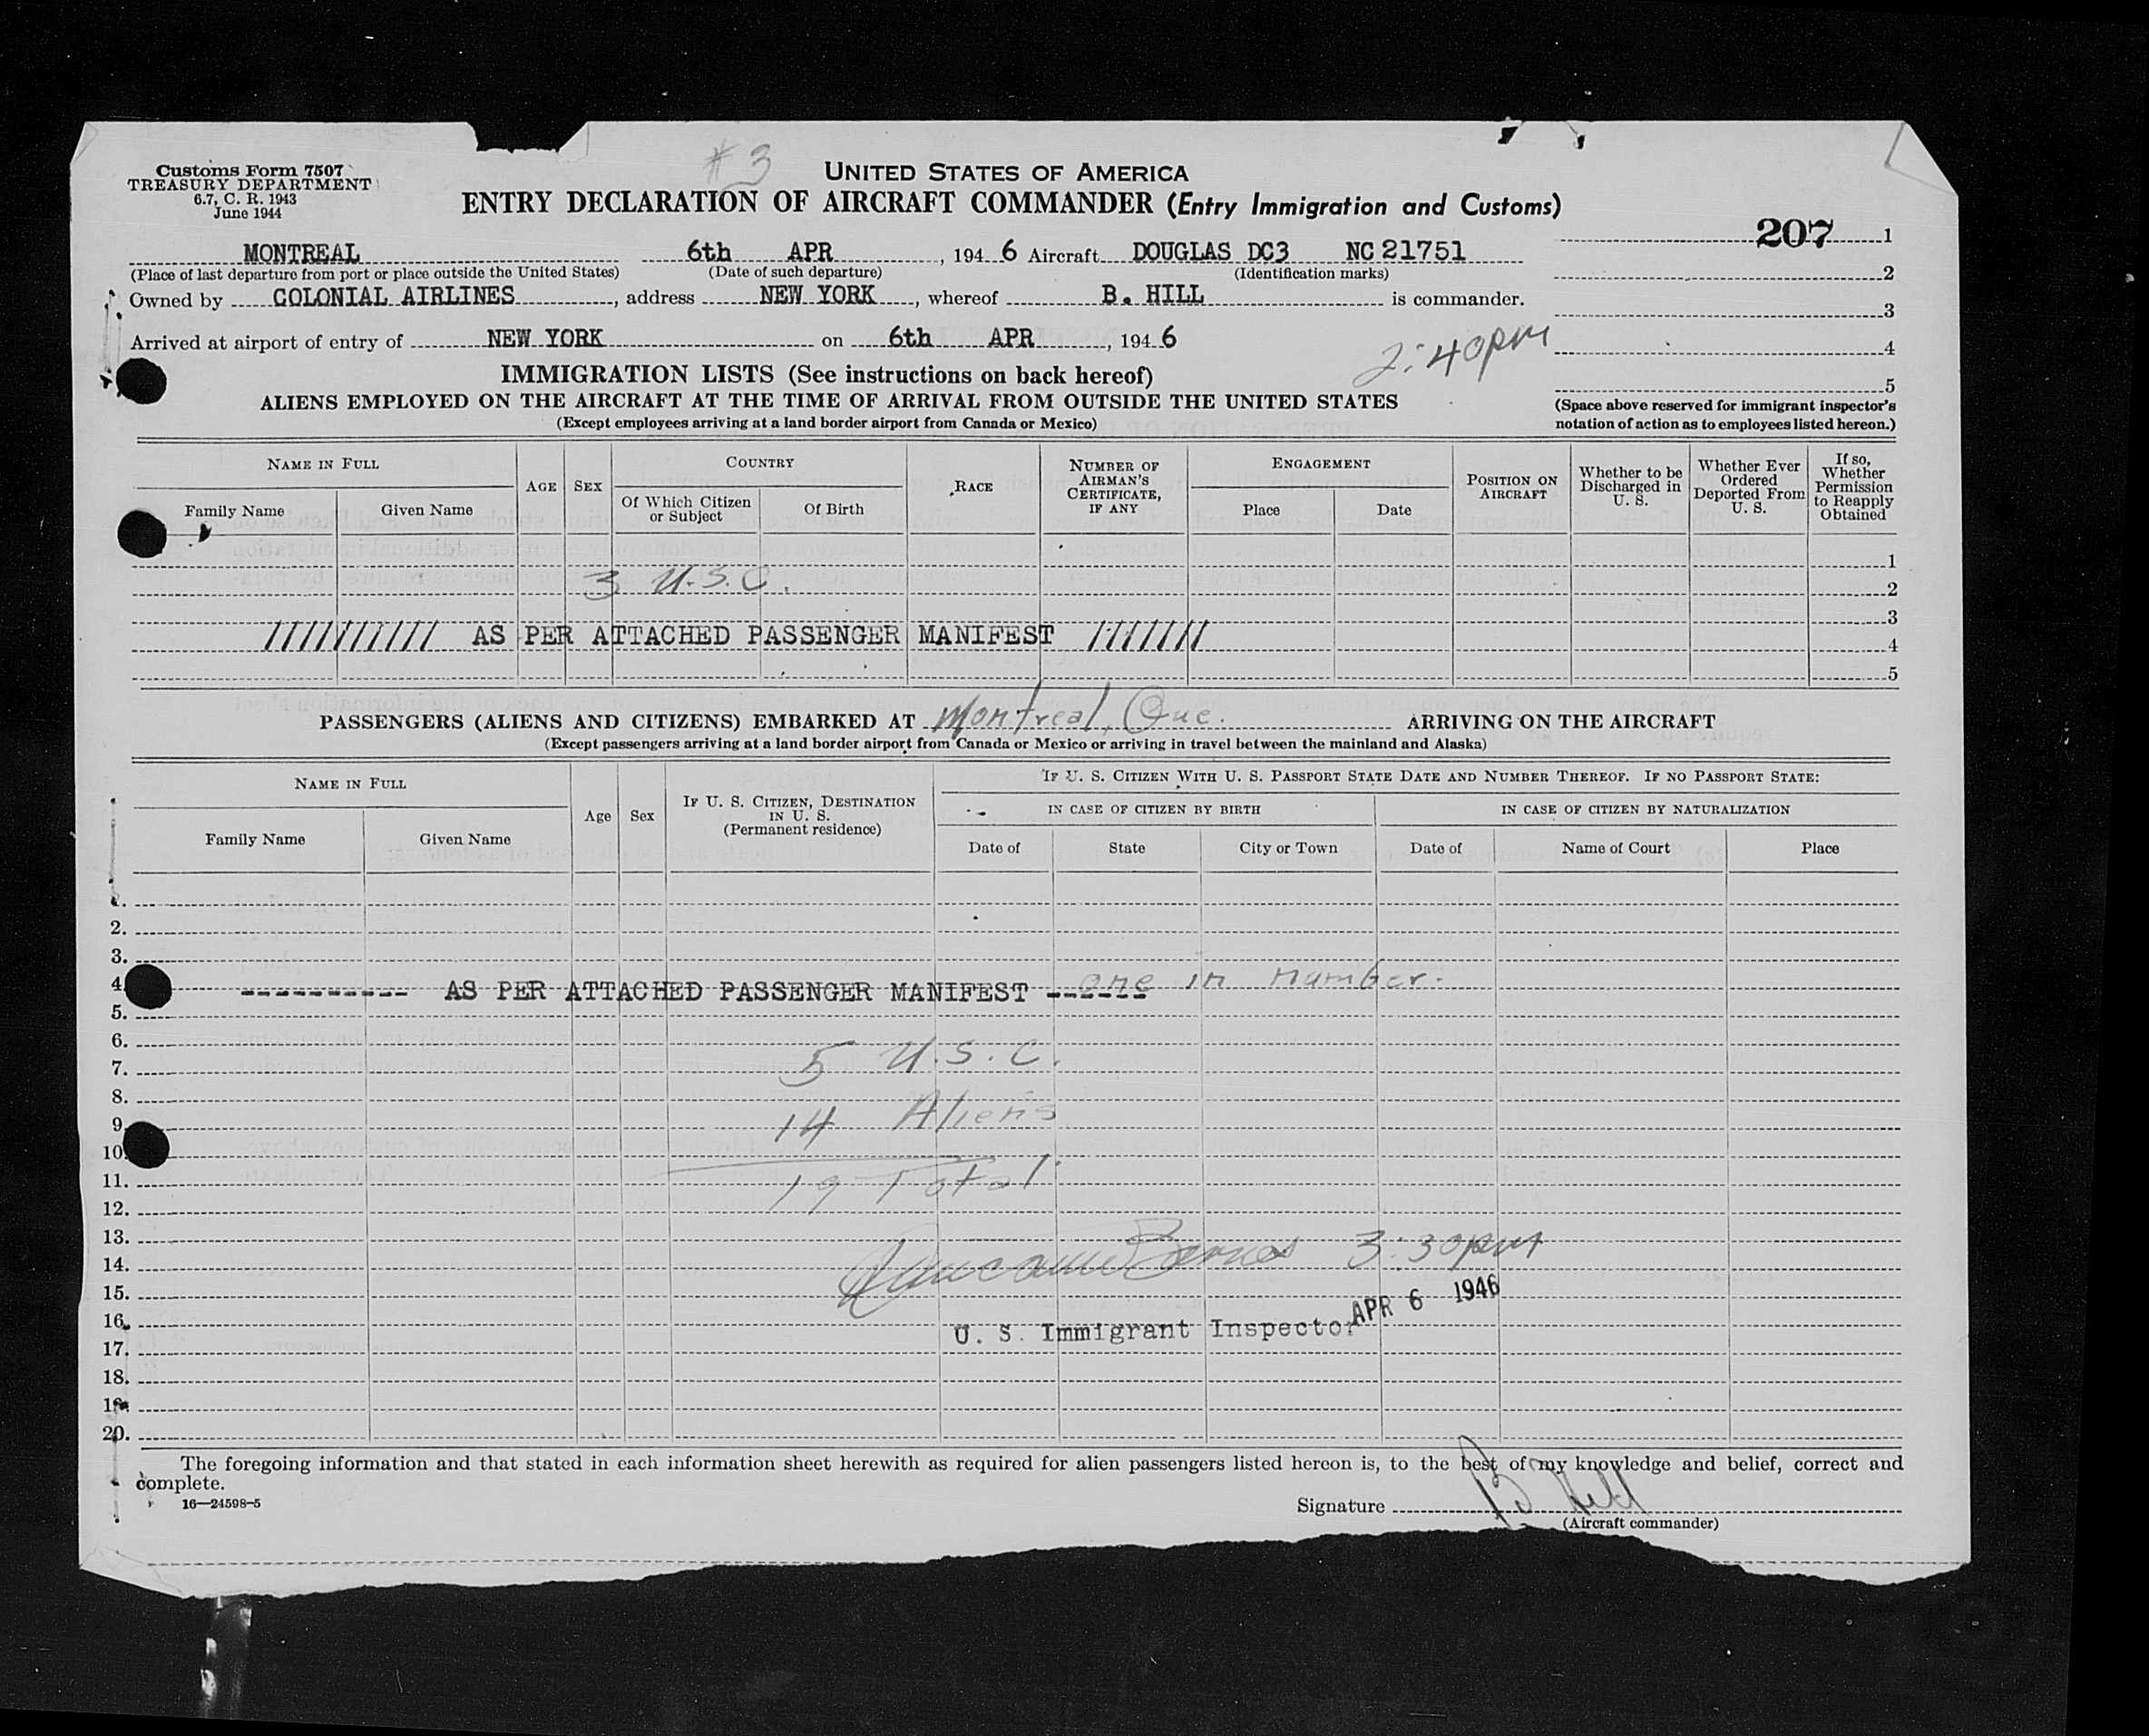 #3
Customs Form 7507
TREASURY DEPARTMENT
6.7, C. R. 1943
June 1944
UNITED STATES OF AMERICA
ENTRY DECLARATION OF AIRCRAFT COMMANDER (Entry Immigration and Customs)
207 1
MONTREAL 6th APR , 194 6 Aircraft DOUGLAS DC3 NC 21751
(Place of last departure from port or place outside the United States) (Date of such departure) (Identification marks)
2
Owned by COLONIAL AIRLINES , address NEW YORK , whereof B. HILL is commander.
3
Arrived at airport of entry of NEW YORK on 6th APR , 194 6
2:40pm
4
IMMIGRATION LISTS (See instructions on back hereof)
5
ALIENS EMPLOYED ON THE AIRCRAFT AT THE TIME OF ARRIVAL FROM OUTSIDE THE UNITED STATES
(Except employees arriving at a land border airport from Canada or Mexico)
(Space above reserved for immigrant inspector's
notation of action as to employees listed hereon.)
NAME IN FULL
Family Name Given Name
AGE SEX
COUNTRY
Of Which Citizen
or Subject
Of Birth
RACE
NUMBER OF
AIRMAN'S
CERTIFICATE,
IF ANY
ENGAGEMENT
Place Date
POSITION ON
AIRCRAFT
Whether to be
Discharged in
U. S.
Whether Ever
Ordered
Deported From
U. S.
If so,
Whether
Permission
to Reapply
Obtained
1
3 U.S.C. 2
3
/////////// AS PER ATTACHED PASSENGER MANIFEST /////// 4
5
PASSENGERS (ALIENS AND CITIZENS) EMBARKED AT Montreal, Que. ARRIVING ON THE AIRCRAFT
(Except passengers arriving at a land border airport from Canada or Mexico or arriving in travel between the mainland and Alaska)
NAME IN FULL
Family Name Given Name
Age Sex
IF U. S. CITIZEN, DESTINATION
IN U. S.
(Permanent residence)
IF U. S. CITIZEN WITH U. S. PASSPORT STATE DATE AND NUMBER THEREOF. IF NO PASSPORT STATE:
IN CASE OF CITIZEN BY BIRTH IN CASE OF CITIZEN BY NATURALIZATION
Date of State City or Town Date of Name of Court Place
1.
2.
3.
4 ---------- AS PER ATTACHED PASSENGER MANIFEST ------ one in number.
5.
6.
7. 5 U.S.C.
8.
9. 14 Aliens
10.
11. 19 Total
12.
13.
14. 3:30pm
15. APR 6 1946
16. U. S. Immigrant Inspector
17.
18.
19.
20.
The foregoing information and that stated in each information sheet herewith as required for alien passengers listed hereon is, to the best of my knowledge and belief, correct and
complete.
16—24598-5
Signature B Hill
(Aircraft commander)